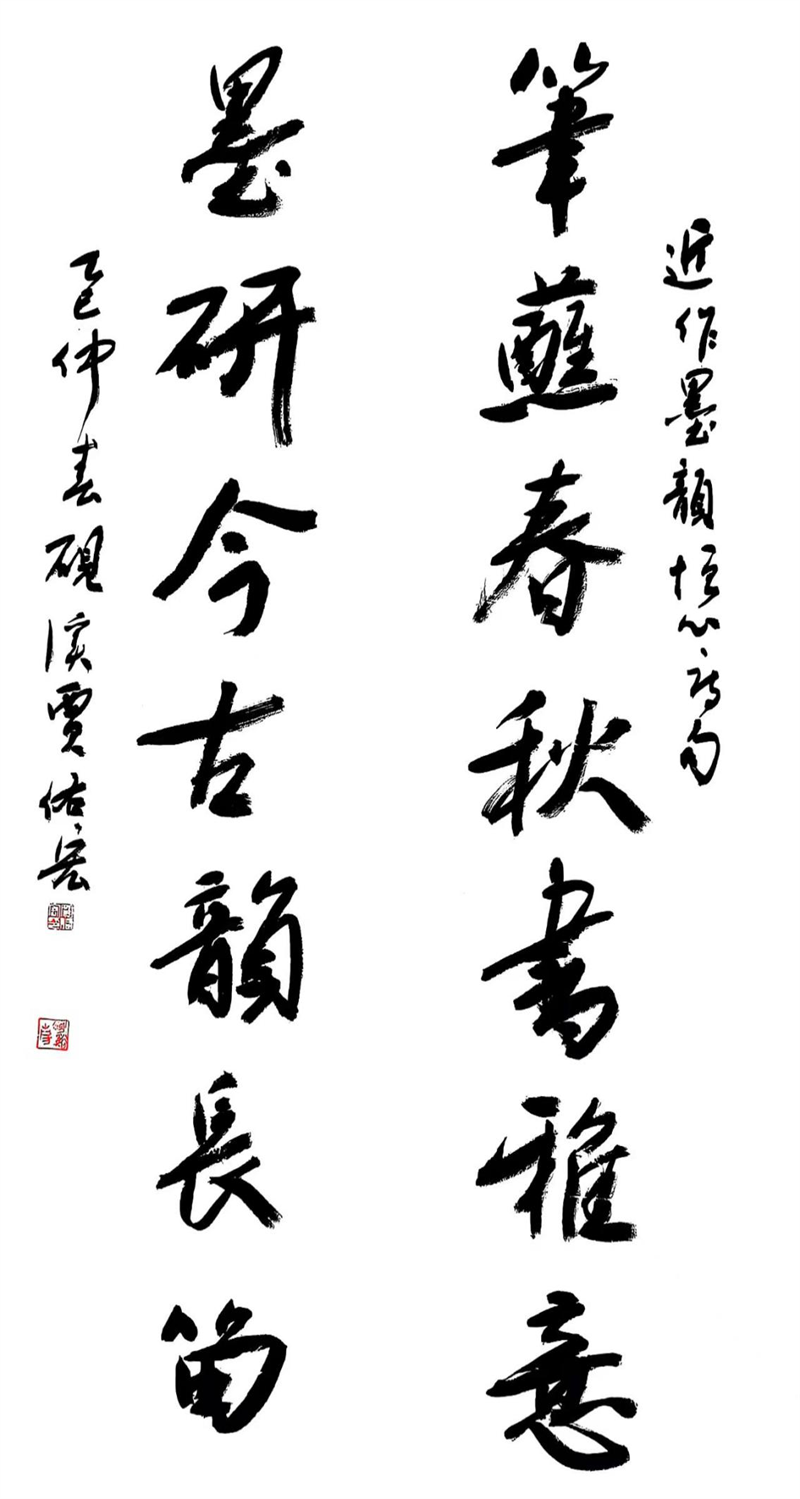 近作墨韻恒心詩句
筆蘸春秋書雅意
墨研今古韻長留
乙巳仲春硯賈佑宏